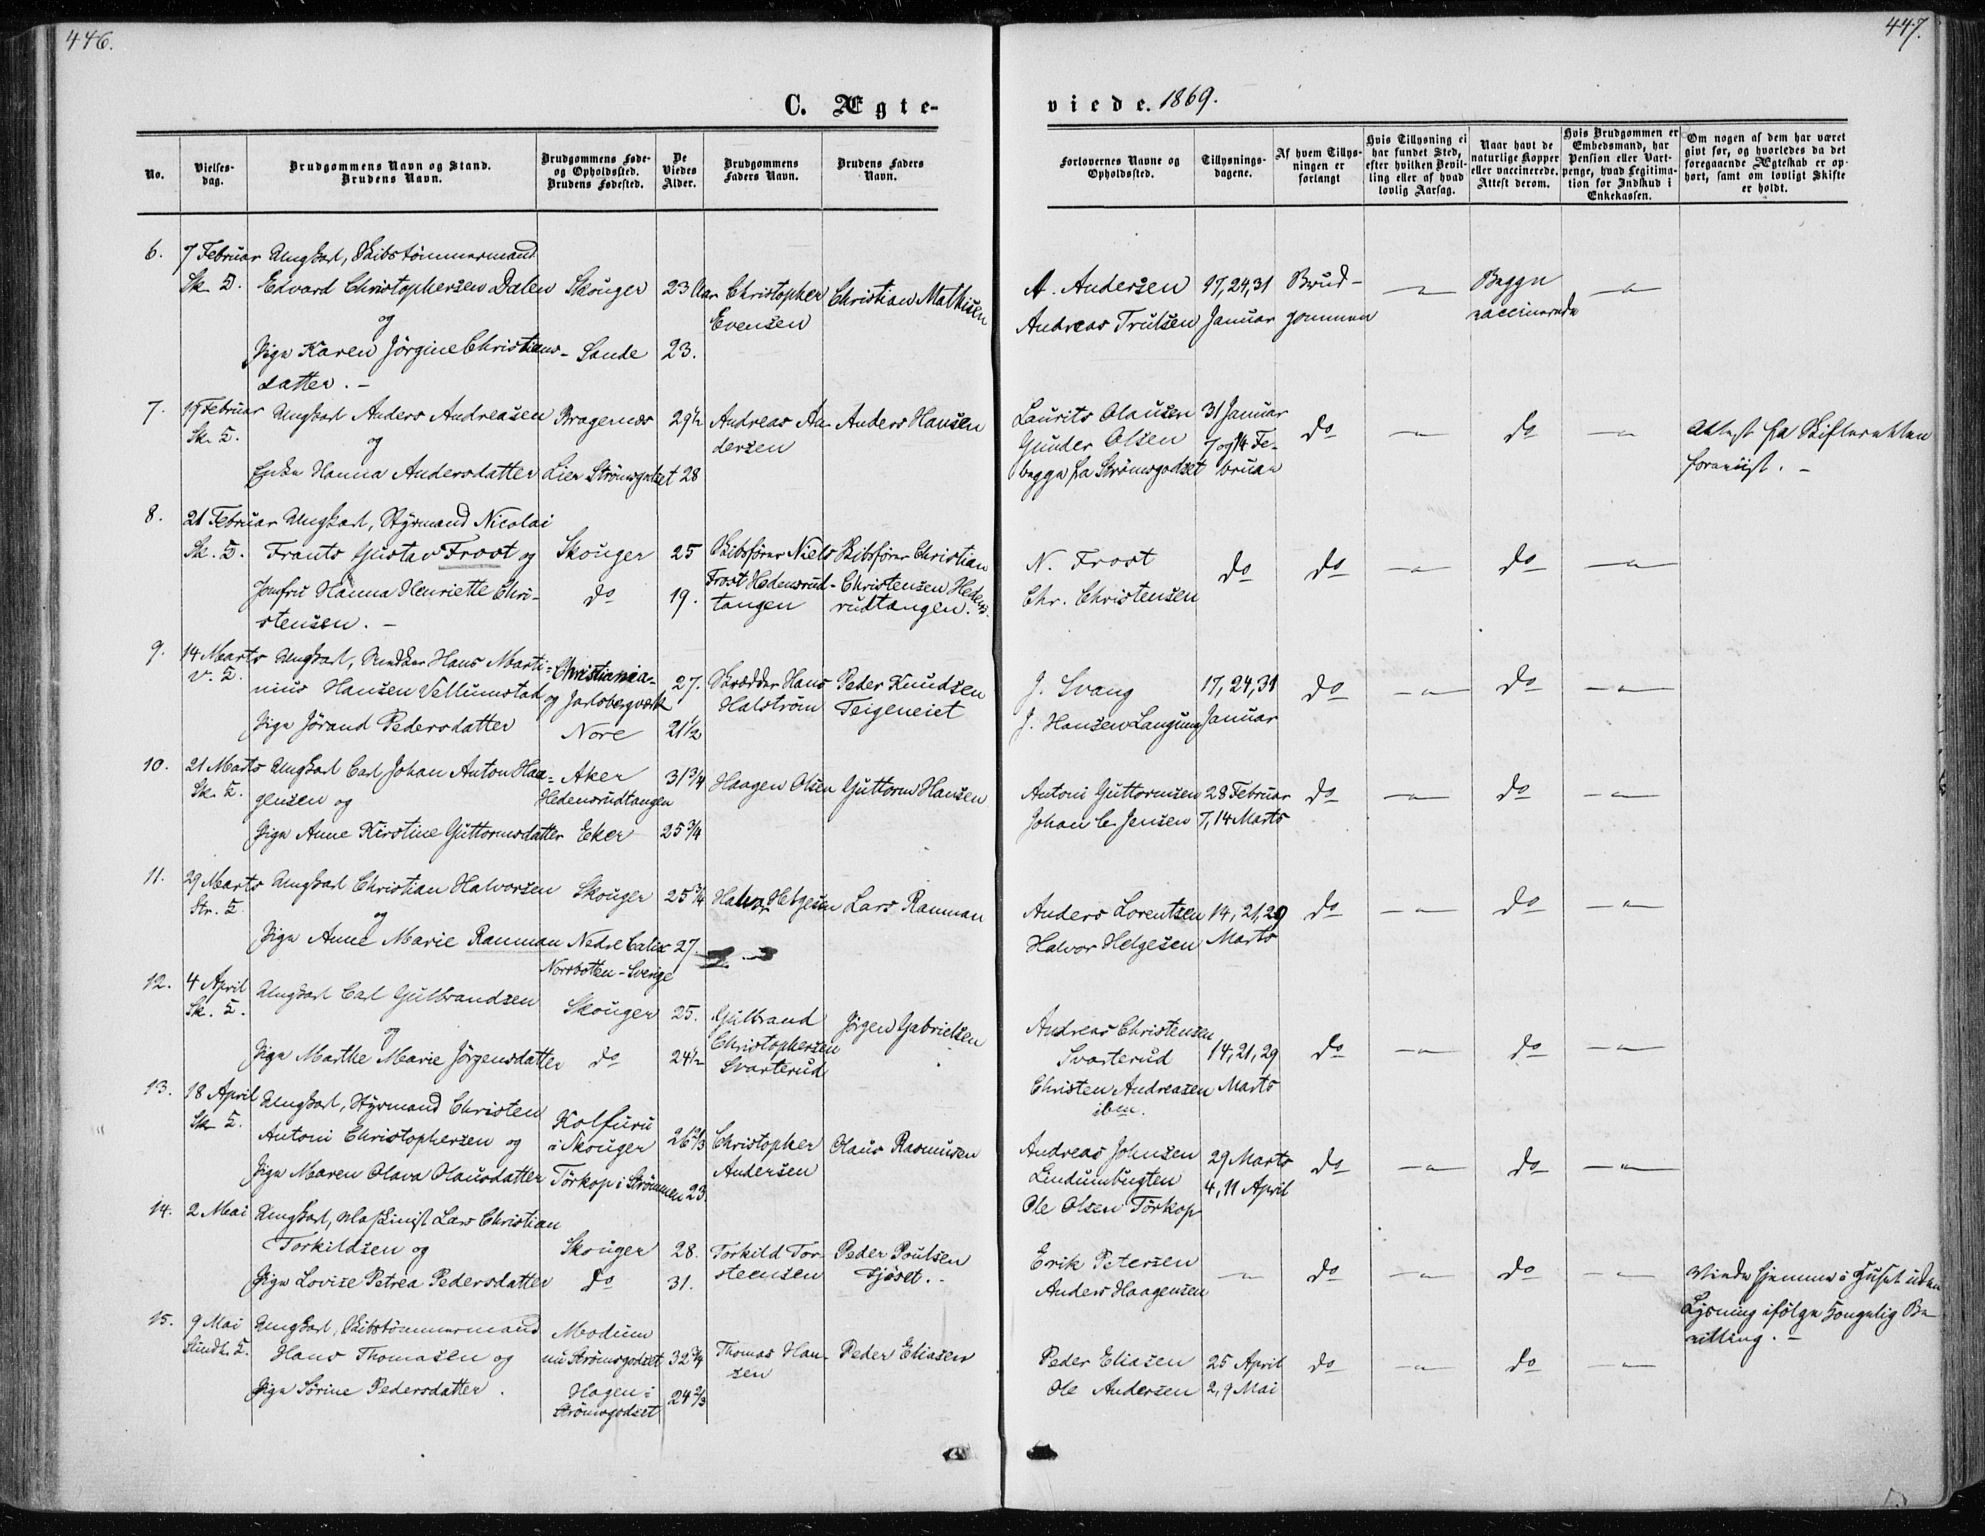 446.
C. Ægte-
No.
Vielses-
dag.
Brudgommens Navn og Stand.
Brudens Navn.
Brudgommens Føde-
og Opholdssted.
Brudens Fødested.
De
Viedes
Alder.
Brudgommens
Faders Navn.
Brudens Faders
Navn.
6. 7 Februar Ungkarl, Skibstömmermand
Sk. K. Edvard Christophersen Dalen Skouger 23 Aar Christopher Christian Mathisen
og Evensen
Pige Karen Jörgine Christians- Sande 23.
datter. –
7. 19 Februar Ungkarl Anders Andreasen Bragernæs 29½ Andreas An- Anders Hansen
Sk. K. og dersen
Enke Hanna Andersdatter Lier Strömsgodset 28
8. 21 Februar Ungkarl, Styrmand Nicolai
Sk. K. Frants Gustav Frost og Skouger 25 Skibsfører Niels Skibsfører Christian
Frost Hedensrud- Christensen Hedens-
Jomfru Hanna Henriette Chri- do 19. tangen rudtangen.
stensen. –
9. 14 Marts Ungkarl, Snedker Hans Marti- Christiania-
V. K. nius Hansen Vellumstad og Jarlsbergværk 27. Skrædder Hans Peder Knudsen
Halström Teigeneiet
Pige Jörand Pedersdatter Nore 21½
10. 21 Marts Ungkarl Carl Johan Anton Haa- Aker 31¾ Haagen Olsen Guttorm Hansen
Sk. K. gensen og Hedensrudtangen
Pige Anne Kirstine Guttormsdatter Eker 25¾
11. 29 Marts Ungkarl Christian Halvorsen Skouger 25¾ Halvor Helgesen Lars Ranman
Str. K. og
Pige Anne Marie Ranman Nedre Calix 27.
Norrbotten-Sverige
12. 4 April Ungkarl Carl Gulbrandsen Skouger 25. Gulbrand Jörgen Gabrielsen
Sk. K. og Christophersen
Pige Marthe Marie Jörgensdatter do 24½ Svarterud
13. 18 April Ungkarl, Styrmand Christen Kolfuru
Sk. K. Antoni Christophersen og i Skouger 26⅔ Christopher Olaus Rasmusen
Pige Maren Olava Olausdatter Törkop i Strömmen 23 Andersen
14. 2 Mai Ungkarl, Maskinist Lars Christian
Torkildsen og Skouger 28. Torkild Tor- Peder Poulsen
Pige Lovise Petrea Pedersdatter do 31. steensen Tjöset. -
15. 9 Mai Ungkarl, Skibstömmermand Modum
K. Hans Thomasen og nu Strömsgodset 32¾ Thomas Han- Peder Eliasen
sen
Pige Sörine Pedersdatter. Hagen i 24⅔
Strömsgodset
447.
viede. 1869.
Forlovernes Navne og
Opholdssted.
Tillysnings-
dagene.
Af hvem Tillys-
ningen er
forlangt
Hvis Tillysning ei
har fundet Sted,
efter hvilken Bevil-
ling eller af hvad
lovlig Aarsag.
Naar havt de
naturlige Kopper
eller vaccinerede.
Attest derom.
Hvis Brudgommen er
Embedsmand, har
Pension eller Vart-
penge, hvad Legitima-
tion for Indskud i
Enkekassen.
Om nogen af dem har været
givt før, og hvorledes da det
foregaaende Ægteskab er op-
hørt, samt om lovligt Skifte
er holdt.
A. Andersen 17, 24, 31 Brud- – " – Begge – " –
Andreas Trulsen Januar gommen vaccinerede
Laurits Olausen 31 Januar
Gunder Olsen 7 og 14 Fe- do – " – do – " – Attest fra Skifteretten
begge fra Strömsgodset bruar foreviist. –
N. Frost do do – " – do – " –
Chr. Christensen
J. Svang 17, 24, 31 do – " – do – " –
J. Hansen Januar
Antoni Guttormsen 28 Februar do – " – do – " –
Johan C. Jensen 7, 14 Marts
Anders Lorentsen 14, 21, 29 do – " – do – " –
Halvor Helgesen Marts
Andreas Christensen
Svarterud 14, 21, 29 do – " – do – " –
Christen Andreasen Marts
ibm.
Andreas Johnsen 29 Marts do – " – do – " –
Lindumbugten 4, 11 April
Ole Olsen Törkop
Erik Petersen – " – do – " – do – " – Viede hjemme i Huset uden
Anders Haagensen Lysning ifölge Kongelig Be-
villing. –
Peder Eliasen 25 April do – " – do – " –
Ole Andersen 2, 9 Mai